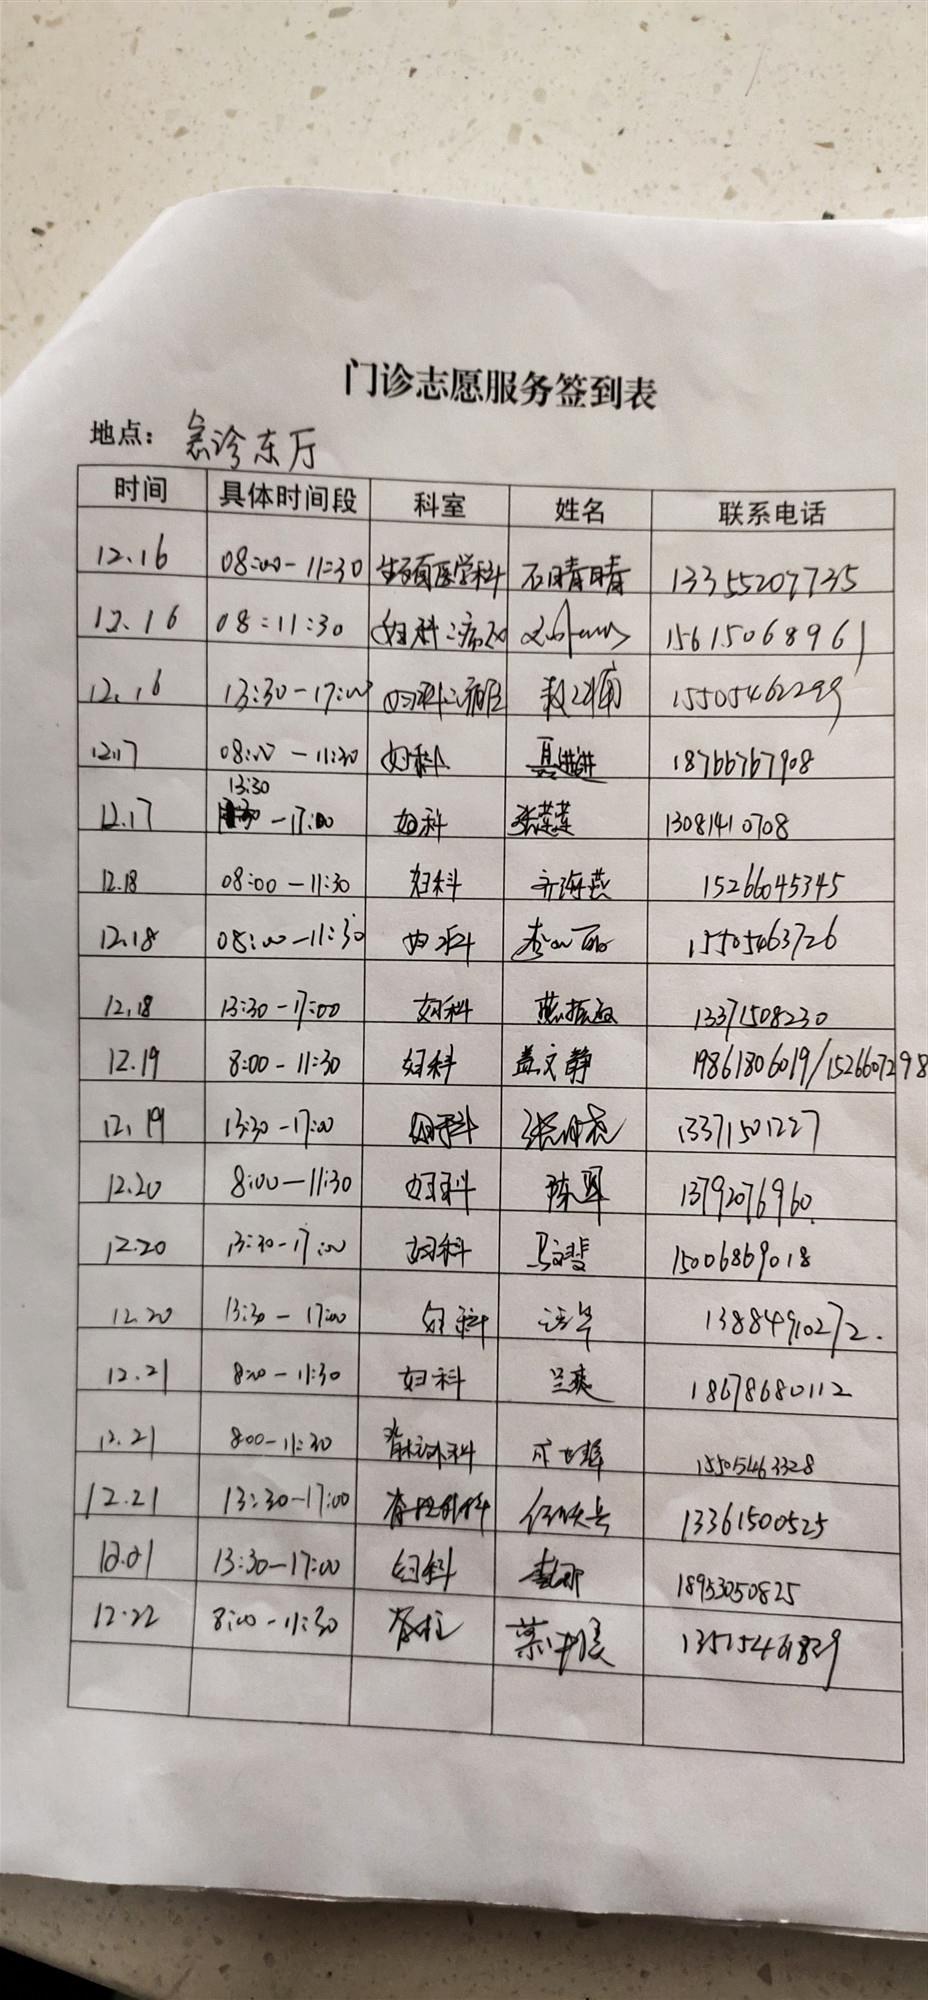 门诊志愿服务签到表
地点：急诊东厅
时间 具体时间段 科室 姓名 联系电话
12.16 08:00-11:30 生殖医学科 石晴晴 13355207735
12.16 08:11:30 妇科二病区 15615068961
12.16 13:30-17:00 妇科二病区 15505462299
12.17 08:00-11:30 妇科 聂进进 18766767908
12.17 13:30-17:00 妇科 张莲莲 13081410708
12.18 08:00-11:30 妇科 齐海燕 15266045345
12.18 08:00-11:30 妇科 李 15505463726
12.18 13:30-17:00 妇科 燕振 13371508230
12.19 8:00-11:30 妇科 盖文静 19861806019/1526607298
12.19 13:30-17:00 妇科 张 13371501227
12.20 8:00-11:30 妇科 陈 13792076960.
12.20 13:30-17:00 妇科 马文斐 15006869018
12.20 13:30-17:00 妇科 13884910272.
12.21 8:00-11:30 妇科 兰爽 18678680112
12.21 8:00-11:30 脊柱外科 15505463328
12.21 13:30-17:00 脊柱外科 任 13361500525
12.21 13:30-17:00 妇科 18953050825
12.22 8:00-11:30 脊柱 13515461829